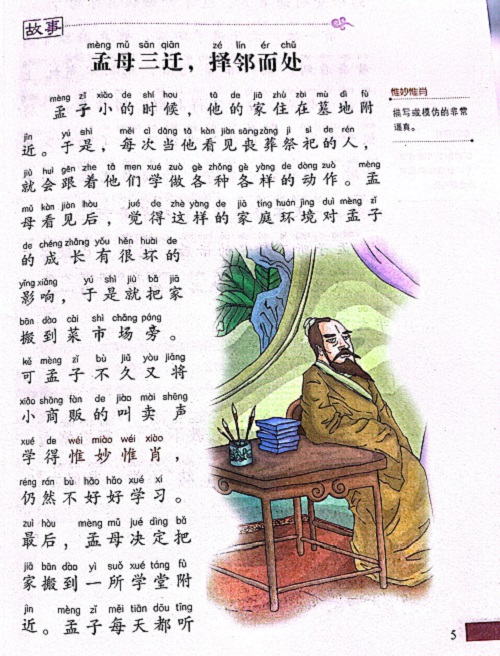 故事
mèng mǔ sān qiān zé lín ér chǔ
孟母三迁，择邻而处
mèng zǐ xiǎo de shí hou tā de jiā zhù zài mù dì fù
孟子小的时候，他的家住在墓地附
jìn yú shì měi cì dāng tā kàn jiàn sāng zàng jì sì de rén
近。于是，每次当他看见丧葬祭祀的人，
jiù huì gēn zhe tā men xué zuò gè zhǒng gè yàng de dòng zuò mèng
就会跟着他们学做各种各样的动作。孟
mǔ kàn jiàn hòu jué de zhè yàng de jiā tíng huán jìng duì mèng zǐ
母看见后，觉得这样的家庭环境对孟子
de chéng zhǎng yǒu hěn huài de
的成长有很坏的
yǐng xiǎng yú shì jiù bǎ jiā
影响，于是就把家
bān dào cài shì chǎng páng
搬到菜市场旁。
kě mèng zǐ bù jiǔ yòu jiāng
可孟子不久又将
xiǎo shāng fàn de jiào mài shēng
小商贩的叫卖声
xué de wéi miào wéi xiào
学得惟妙惟肖，
réng rán bù hǎo hǎo xué xí
仍然不好好学习。
zuì hòu mèng mǔ jué dìng bǎ
最后，孟母决定把
jiā bān dào yì suǒ xué táng fù
家搬到一所学堂附
jìn mèng zǐ měi tiān dōu tīng
近。孟子每天都听
惟妙惟肖
描写或模仿的非常
逼真。
5